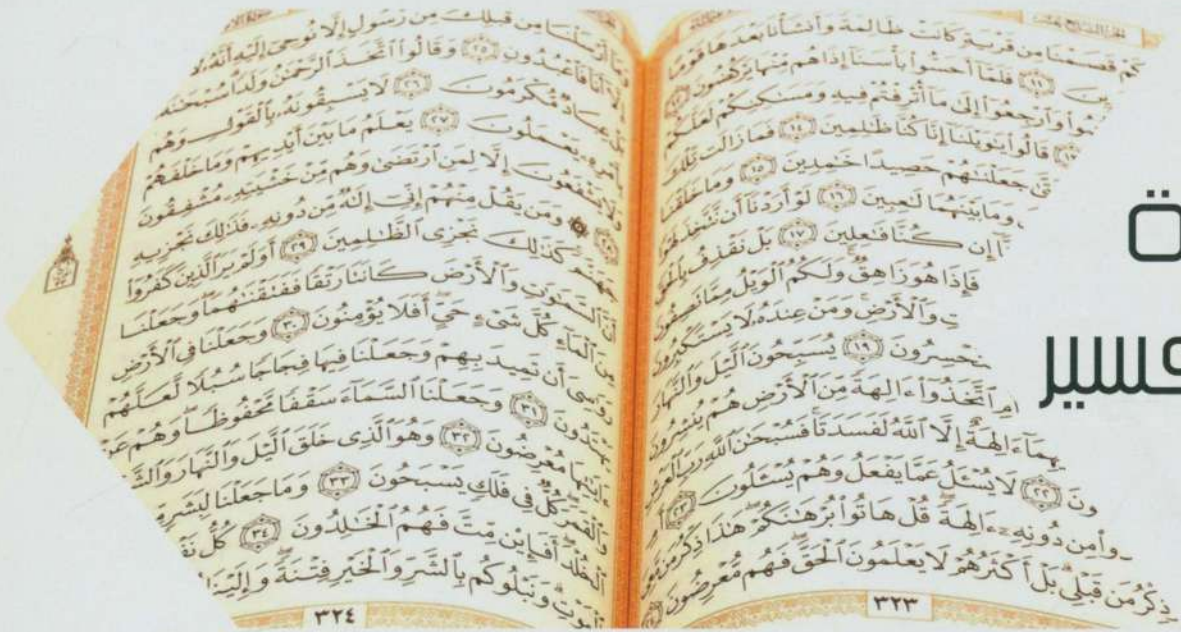 ة
فسير
كَمْ قَصَمْنَا مِن قَرْيَةٍ كَانَتْ ظَالِمَةً وَأَنشَأْنَا بَعْدَهَا قَوْمًا
ينَ ﴿١١﴾ فَلَمَّآ أَحَسُّوا۟ بَأْسَنَآ إِذَا هُم مِّنْهَا يَرْكُضُونَ ﴿١٢﴾
وا۟ وَٱرْجِعُوٓا۟ إِلَىٰ مَآ أُتْرِفْتُمْ فِيهِ وَمَسَٰكِنِكُمْ لَعَلَّكُمْ
﴿١٣﴾ قَالُوا۟ يَٰوَيْلَنَآ إِنَّا كُنَّا ظَٰلِمِينَ ﴿١٤﴾ فَمَا زَالَت تِّلْكَ
تَّىٰ جَعَلْنَٰهُمْ حَصِيدًا خَٰمِدِينَ ﴿١٥﴾ وَمَا خَلَقْنَا
وَمَا بَيْنَهُمَا لَٰعِبِينَ ﴿١٦﴾ لَوْ أَرَدْنَآ أَن نَّتَّخِذَ لَهْوًا
نَّآ إِن كُنَّا فَٰعِلِينَ ﴿١٧﴾ بَلْ نَقْذِفُ بِٱلْحَقِّ
فَإِذَا هُوَ زَاهِقٌ وَلَكُمُ ٱلْوَيْلُ مِمَّا تَصِفُونَ
تِ وَٱلْأَرْضِ وَمَنْ عِندَهُۥ لَا يَسْتَكْبِرُونَ
سْتَحْسِرُونَ ﴿١٩﴾ يُسَبِّحُونَ ٱلَّيْلَ وَٱلنَّهَارَ
أَمِ ٱتَّخَذُوٓا۟ ءَالِهَةً مِّنَ ٱلْأَرْضِ هُمْ يُنشِرُونَ
هِمَآ ءَالِهَةٌ إِلَّا ٱللَّهُ لَفَسَدَتَا فَسُبْحَٰنَ ٱللَّهِ رَبِّ ٱلْعَرْشِ
ونَ ﴿٢٢﴾ لَا يُسْـَٔلُ عَمَّا يَفْعَلُ وَهُمْ يُسْـَٔلُونَ ﴿٢٣﴾ أَ
وا۟ مِن دُونِهِۦٓ ءَالِهَةً قُلْ هَاتُوا۟ بُرْهَٰنَكُمْ هَٰذَا ذِكْرُ مَن مَّعِىَ
ذِكْرُ مَن قَبْلِى بَلْ أَكْثَرُهُمْ لَا يَعْلَمُونَ ٱلْحَقَّ فَهُم مُّعْرِضُونَ ﴿٢٤﴾
٣٢٣
وَمَآ أَرْسَلْنَا مِن قَبْلِكَ مِن رَّسُولٍ إِلَّا نُوحِىٓ إِلَيْهِ أَنَّهُۥ لَآ
إِلَٰهَ إِلَّآ أَنَا۠ فَٱعْبُدُونِ ﴿٢٥﴾ وَقَالُوا۟ ٱتَّخَذَ ٱلرَّحْمَٰنُ وَلَدًا سُبْحَٰنَهُۥ
بَلْ عِبَادٌ مُّكْرَمُونَ ﴿٢٦﴾ لَا يَسْبِقُونَهُۥ بِٱلْقَوْلِ وَهُم
بِأَمْرِهِۦ يَعْمَلُونَ ﴿٢٧﴾ يَعْلَمُ مَا بَيْنَ أَيْدِيهِمْ وَمَا خَلْفَهُمْ
وَلَا يَشْفَعُونَ إِلَّا لِمَنِ ٱرْتَضَىٰ وَهُم مِّنْ خَشْيَتِهِۦ مُشْفِقُونَ
﴿٢٨﴾ ۞ وَمَن يَقُلْ مِنْهُمْ إِنِّىٓ إِلَٰهٌ مِّن دُونِهِۦ فَذَٰلِكَ نَجْزِيهِ
جَهَنَّمَ كَذَٰلِكَ نَجْزِى ٱلظَّٰلِمِينَ ﴿٢٩﴾ أَوَلَمْ يَرَ ٱلَّذِينَ كَفَرُوٓا۟
أَنَّ ٱلسَّمَٰوَٰتِ وَٱلْأَرْضَ كَانَتَا رَتْقًا فَفَتَقْنَٰهُمَا وَجَعَلْنَا
مِنَ ٱلْمَآءِ كُلَّ شَىْءٍ حَىٍّ أَفَلَا يُؤْمِنُونَ ﴿٣٠﴾ وَجَعَلْنَا فِى ٱلْأَرْضِ
رَوَٰسِىَ أَن تَمِيدَ بِهِمْ وَجَعَلْنَا فِيهَا فِجَاجًا سُبُلًا لَّعَلَّهُمْ
يَهْتَدُونَ ﴿٣١﴾ وَجَعَلْنَا ٱلسَّمَآءَ سَقْفًا مَّحْفُوظًا وَهُمْ عَنْ
ءَايَٰتِهَا مُعْرِضُونَ ﴿٣٢﴾ وَهُوَ ٱلَّذِى خَلَقَ ٱلَّيْلَ وَٱلنَّهَارَ وَٱلشَّ
وَٱلْقَمَرَ كُلٌّ فِى فَلَكٍ يَسْبَحُونَ ﴿٣٣﴾ وَمَا جَعَلْنَا لِبَشَرٍ
ٱلْخُلْدَ أَفَإِي۟ن مِّتَّ فَهُمُ ٱلْخَٰلِدُونَ ﴿٣٤﴾ كُلُّ نَفْ
ٱلْمَوْتِ وَنَبْلُوكُم بِٱلشَّرِّ وَٱلْخَيْرِ فِتْنَةً وَإِلَيْنَا
٣٢٤